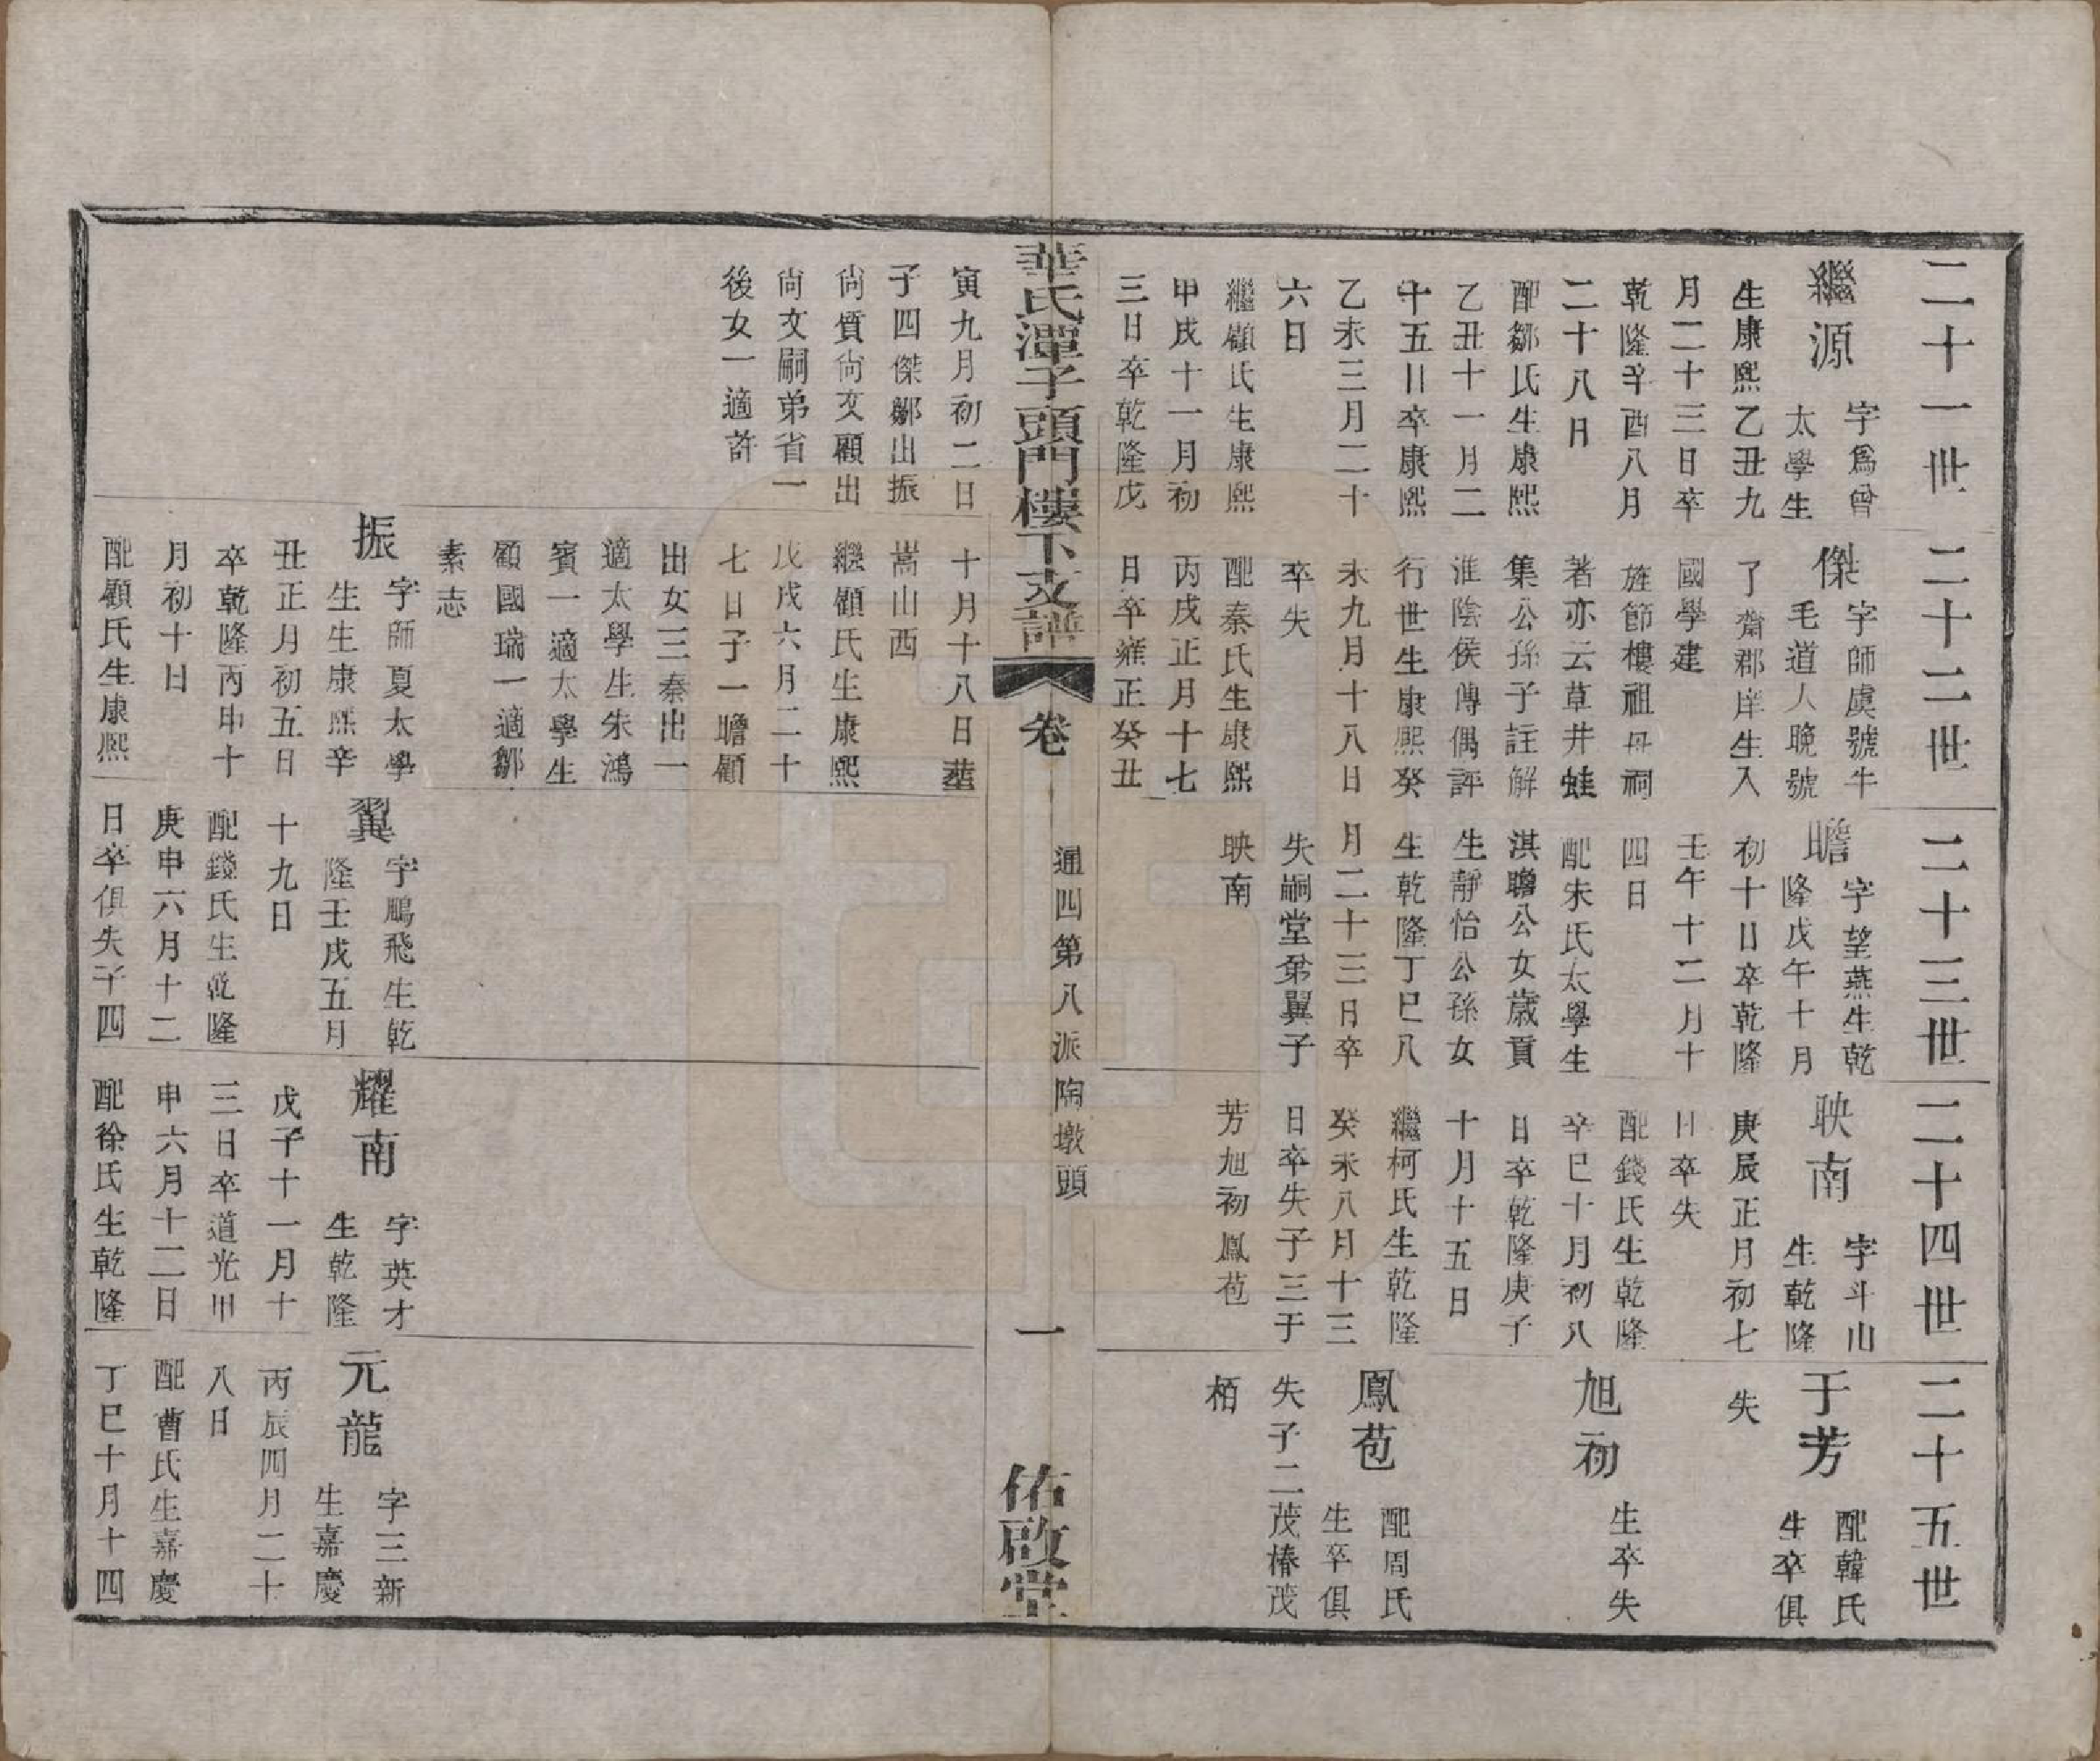 二十一世
繼源
字爲曾
太學生
生康熙乙丑九
月二十三日卒
乾隆辛酉八月
二十八日
配鄒氏生康熙
乙丑十一月二
十五日卒康熙
乙未三月二十
六日
繼顧氏生康熙
甲戌十一月初
三日卒乾隆戊
寅九月初二日
子四傑鄒出振
尙質尙文顧出
尙文嗣弟省一
後女一適許
二十二世
傑
字師虞號牛
毛道人晚號
了齋郡庠生入
國學建
旌節樓祖母祠
著亦云草井蛙
集公孫子註解
淮陰侯傳偶評
行世生康熙癸
未九月十八日
卒失
配秦氏生康熙
丙戌正月十七
日卒雍正癸丑
十月十八日葬
嵩山西
繼顧氏生康熙
戊戌六月二十
七日子一瞻顧
出女三秦出一
適太學生朱鴻
賓一適太學生
顧國瑞一適鄒
素志
振
字師夏太學
生生康熙辛
丑正月初五日
卒乾隆丙申十
月初十日
配顧氏生康熙
二十三世
瞻
字望燕生乾
隆戊午十月
初十日卒乾隆
壬午十二月十
四日
配朱氏太學生
淇瞻公女歲貢
生靜怡公孫女
生乾隆丁巳八
月二十三日卒
失嗣堂弟翼子
映南
翼
字鵬飛生乾
隆壬戌五月
十九日
配錢氏生乾隆
庚申六月十二
日卒俱失子四
二十四世
映南
字斗山
生乾隆
庚辰正月初七
日卒失
配錢氏生乾隆
辛巳十月初八
日卒乾隆庚子
十月十五日
繼柯氏生乾隆
癸未八月十三
日卒失子三于
芳旭初鳳苞
耀南
字英才
生乾隆
戊子十一月十
三日卒道光甲
申六月十二日
配徐氏生乾隆
二十五世
于芳
配韓氏
生卒俱
失
旭初
生卒失
鳳苞
配周氏
生卒俱
失子二茂椿茂
栢
元龍
字三新
生嘉慶
丙辰四月二十
八日
配曹氏生嘉慶
丁巳十月十四
華氏潭子頭門樓下支譜
卷
通四第八派陶墩頭
一
佑啟堂